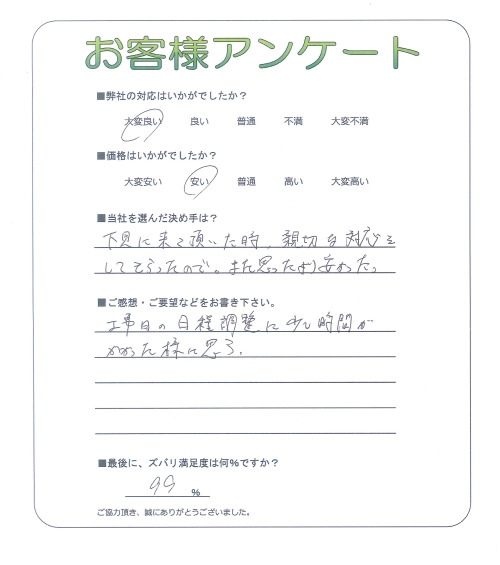 お客様アンケート
■弊社の対応はいかがでしたか？
大変良い 良い 普通 不満 大変不満
■価格はいかがでしたか？
大変安い 安い 普通 高い 大変高い
■当社を選んだ決め手は？
下見に来て頂いた時、親切な対応を
してもらったので。また思ったより安かった。
■ご感想・ご要望などをお書き下さい。
工事日の日程調整に少し時間が
かかった様に思う。
■最後に、ズバリ満足度は何％ですか？
99 ％
ご協力頂き、誠にありがとうございました。